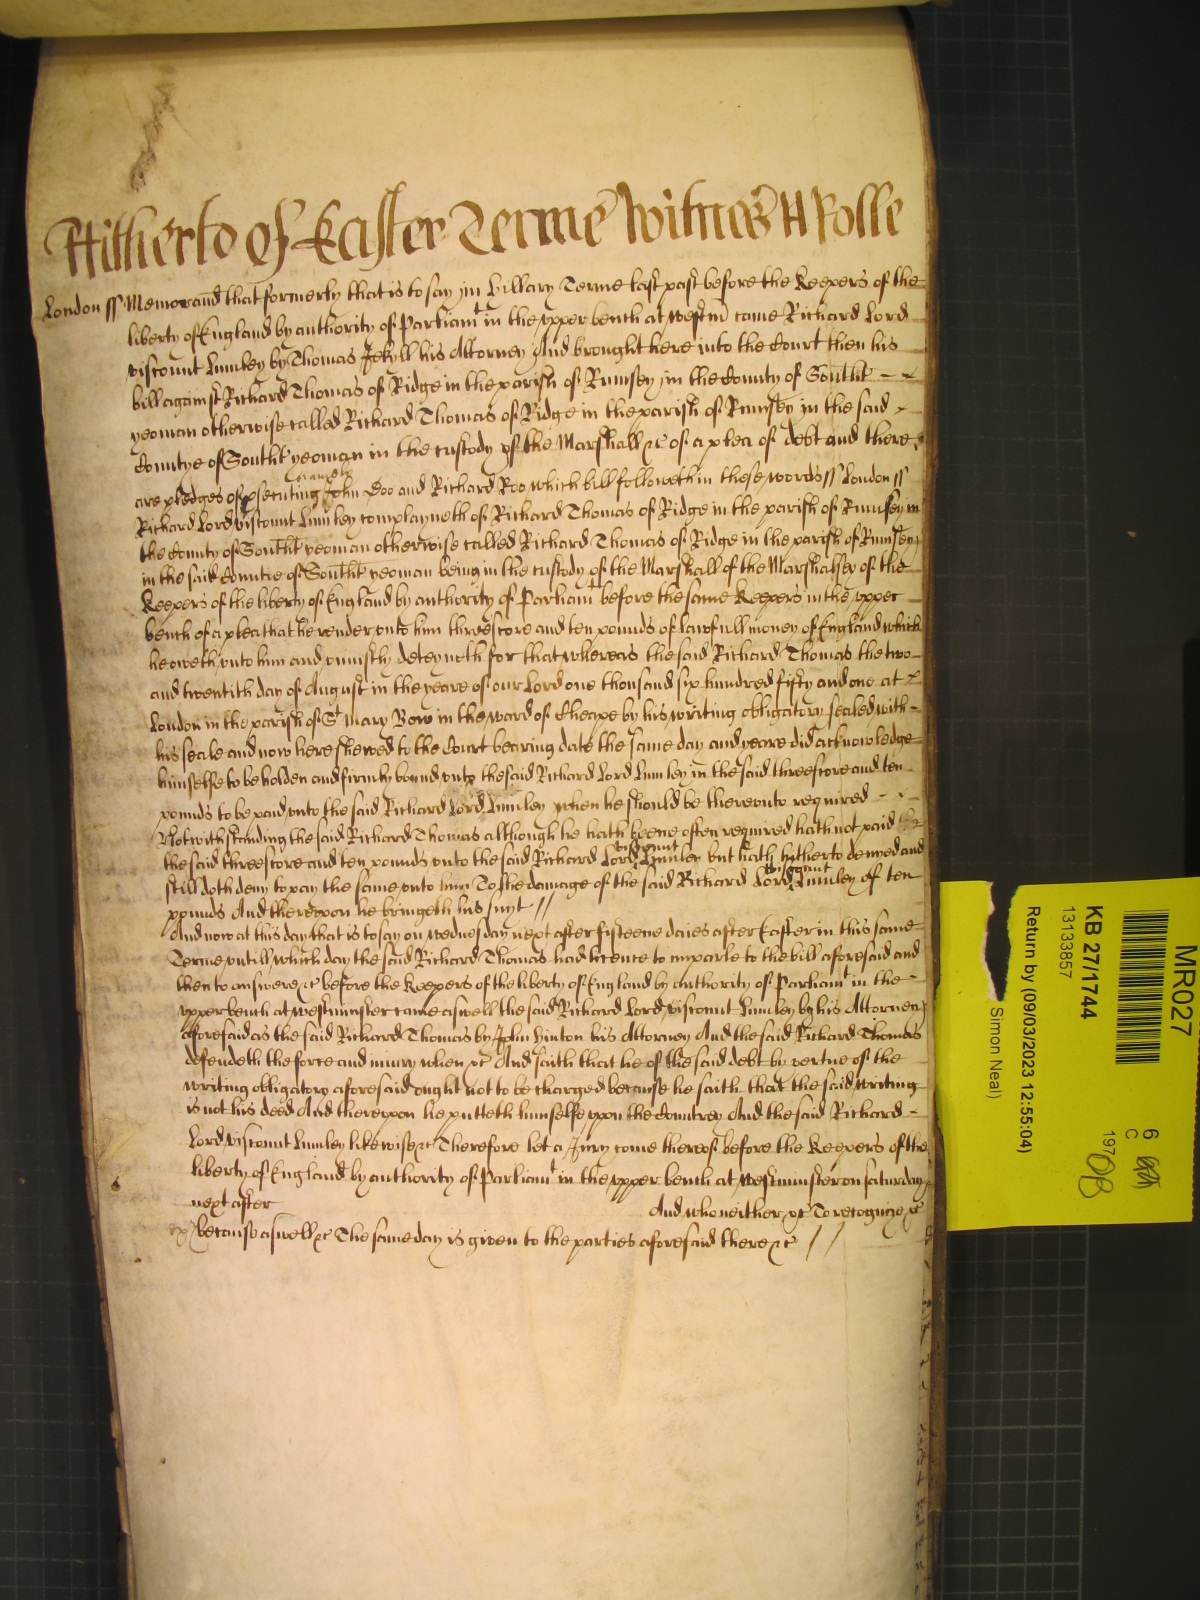 Hitherto of Easter Terme Witnes H Rolle
London ss Memorand that formerly that is to say in Hillary Terme last past before the Keepers of the
liberty of England by authority of Parliamt in the upper bench at Westm came Richard Lord
viscount Lumley by Thomas Jekyll his Attorney And brought here into the Court then his
bill against Richard Thomas of Ridge in the parish of Rumsey in the County of Southt
yeoman otherwise called Richard Thomas of Ridge in the parish of Rumsey in the said
Countye of Southt yeoman in the custody of the Marshall &c of a plea of debt and there
are pledges of psecuting John Doo and Richard Roo which bill followeth in these words ss London ss
Richard Lord viscount Lumley complayneth of Richard Thomas of Ridge in the parish of Rumsey in
the County of Southt yeoman otherwise called Richard Thomas of Ridge in the parish of Rumsey
in the said Countie of Southt yeoman being in the custody of the Marshall of the Marshalsey of the
Keepers of the liberty of England by authority of Parliamt before the same Keepers in the upper
bench of a plea that he render unto him threescore and ten pounds of lawfull money of England which
he oweth unto him and uniustly deteyneth for that whereas the said Richard Thomas the two
and twentith day of August in the yeare of our Lord one thousand six hundred fifty and one at
London in the parish of St Mary Bow in the ward of Cheape by his writing obligatory sealed with
his seale and now here shewed to the Court bearing date the same day and yeare did acknowledge
himselfe to be holden and firmly bound unto the said Richard Lord Lumley in the said threescore and ten
pounds to be paid unto the said Richard Lord Lumley when he should be thereunto required
Notwithstanding the said Richard Thomas although he hath beene often required hath not paid
the said threescore and ten pounds unto the said Richard Lord viscount Lumley but hath hitherto denyed and
still doth deny to pay the same unto him To the damage of the said Richard Lord viscount Lumley of ten
pounds And thereupon he bringeth his suyt //
And now at this day that is to say on wednesday next after fifteene daies after Easter in this same
Terme untill which day the said Richard Thomas had licence to imparle to the bill aforesaid and
then to answere &c before the Keepers of the liberty of England by authority of Parliamt in the
upper bench at Westminster came aswell the said Richard Lord viscount Lumley by his Attorney
aforesaid as the said Richard Thomas by John Hinton his Attorney And the said Richard Thomas
defendeth the force and iniury when &c And saith that he of the said debt by vertue of the
writing obligatory aforesaid ought not to be charged because he saith that the said writing
is not his deed And thereupon he putteth himselfe upon the Countrey And the said Richard
Lord viscount Lumley likewise &c Therefore let a Jury come thereof before the Keepers of the
liberty of England by authority of Parliamt in the upper bench at Westminster on saturday
next after And who neither &c To recognize &c
because aswell &c The same day is given to the parties aforesaid there &c //
MR027
KB 27/1744
13133857
Return by (09/03/2023 12:55:04)
Simon Neal)
6
C
197